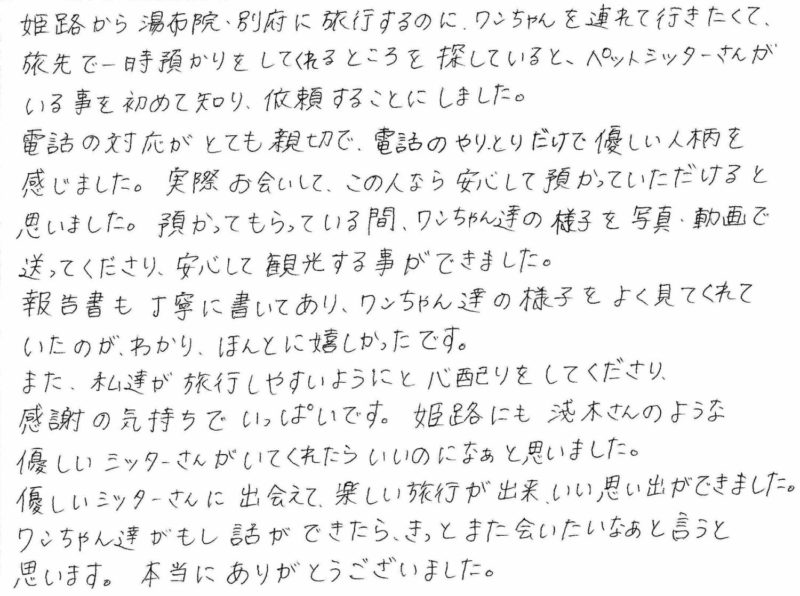 姫路から湯布院・別府に旅行するのに、ワンちゃんを連れて行きたくて、
旅先で一時預かりをしてくれるところを探していると、ペットシッターさんが
いる事を初めて知り、依頼することにしました。
電話の対応がとても親切で、電話のやりとりだけで優しい人柄を
感じました。実際お会いして、この人なら安心して預かっていただけると
思いました。預かってもらっている間、ワンちゃん達の様子を写真・動画で
送ってくださり、安心して観光する事ができました。
報告書も丁寧に書いてあり、ワンちゃん達の様子をよく見てくれて
いたのが、わかり、ほんとに嬉しかったです。
また、私達が旅行しやすいようにと心配りをしてくださり、
感謝の気持ちでいっぱいです。姫路にも浅木さんのような
優しいシッターさんがいてくれたらいいのになぁと思いました。
優しいシッターさんに出会えて、楽しい旅行が出来、いい思い出ができました。
ワンちゃん達がもし話ができたら、きっとまた会いたいなぁと言うと
思います。本当にありがとうございました。